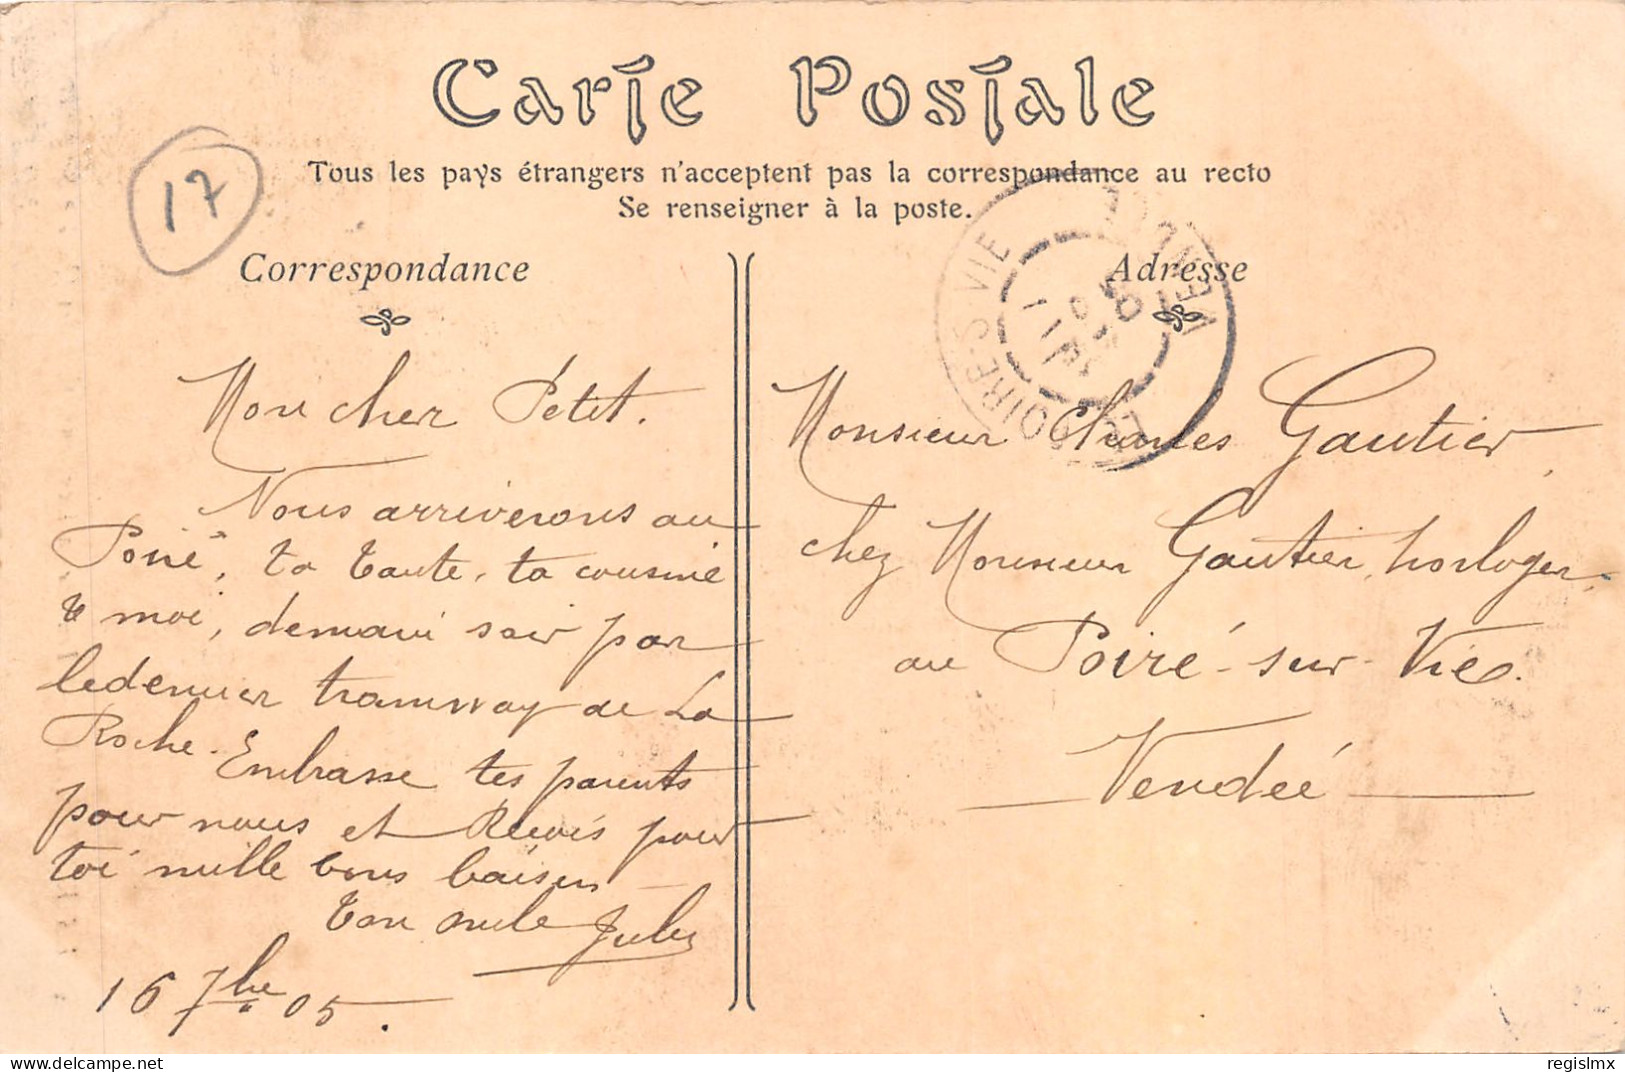 Carte Postale
Tous les pays étrangers n'acceptent pas la correspondance au recto
Se renseigner à la poste.
17
Correspondance
Mon cher Petit.
Nous arriverons au
Poiré, ta tante, ta cousine
& moi, demain soir par
le dernier tramway de La
Roche. Embrasse tes parents
pour nous et Reçois pour
toi mille bons baisers
Ton oncle Jules
16 7bre 05.
Adresse
Monsieur Charles Gautier,
chez Monsieur Gautier, horloger
au Poiré-sur-Vie.
Vendée
POIRÉ-S-VIE
VENDÉE
delcampe.net
regislmx